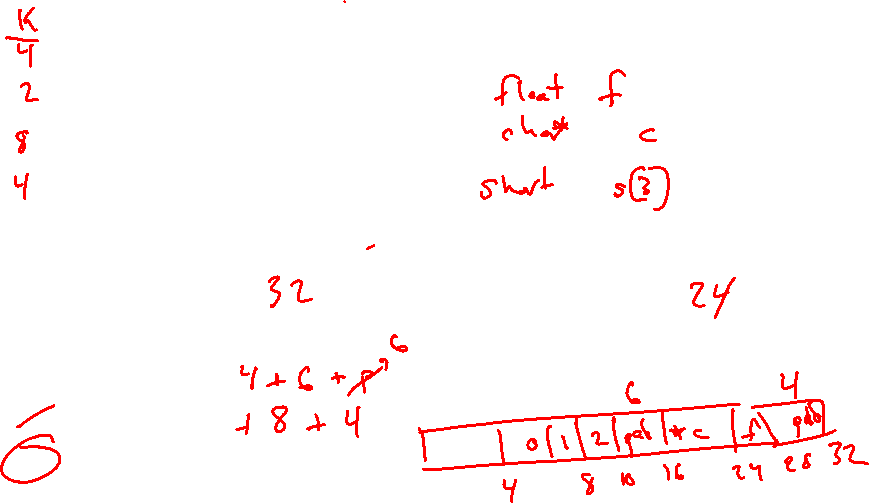 K
4
2
8
4
float f
char* c
short s[3]
32
24
6
4 + 6 + p
+ 8 + 4
6
4
0 1 2 pad * c f pad
4 8 10 16 24 28 32
6